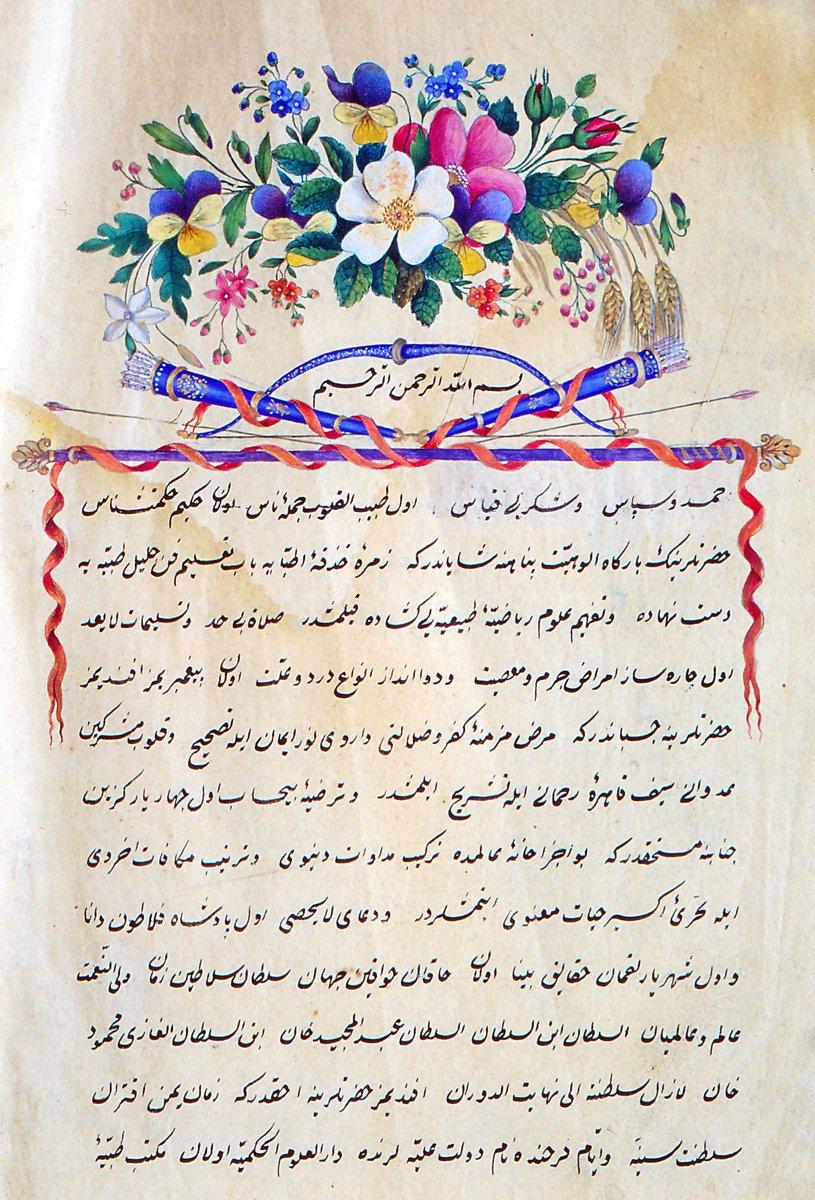 بسم الله الرحمن الرحيم
حمد و سپاس و شكر بى قياس اول طبيب القلوب جملهٔ ناس اولان حكيم حكمتشناس
حضرتلرينك باركاه الوهيت پناهنه شاياندركه زمرهٔ حذقهٔ اطبايه باب تعليم فن جليل طبيه يه
دست نهاده و تفهيم علوم رياضيهٔ طبيعيه يى كشاده قيلمشدر صلاة بى حد و تسليمات لا يعد
اول چاره ساز امراض جرم و معصيت و دوا انداز انواع درد و علت اولان پيغمبريمز افنديمز
حضرتلرينه چسپاندركه مرض مزمنهٔ كفر و ضلالتى داروى نور ايمان ايله تصحيح و قلوب مشركين
عدوانى سيف قاهرهٔ رحمانى ايله تشريح ايلمشدر و ترضيهٔ بيحساب اول چهار يار كزين
جنابنه مستحقدركه بو اجزاخانهٔ عالمده تركيب مداوات دنيوى و ترتيب مكافات اخروى
ايله تحرئ اكسير حيات معنوى ايتمشلردر و دعاى لا يحصى اول پادشاه فلاطون دانا
و اول شهريار لقمان حقايق بينا اولان خاقان خواقين جهان سلطان سلاطين زمان ولى النعمت
عالم و عالميان السلطان ابن السلطان السلطان عبد المجيد خان ابن السلطان الغازى محمود
خان لازال سلطنته الى نهايت الدوران افنديمز حضرتلرينه احقدركه زمان يمن اقتران
سلطنت سنيه و ايام فرخنده فام دولت عليه لرنده دار العلوم الحكميه اولان مكتب طبيهٔ